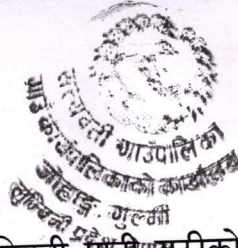 सत्यवती गाउँपालिका
गाउँ कार्यपालिकाको कार्यालय
जोहाङ, गुल्मी
लुम्बिनी प्रदेश